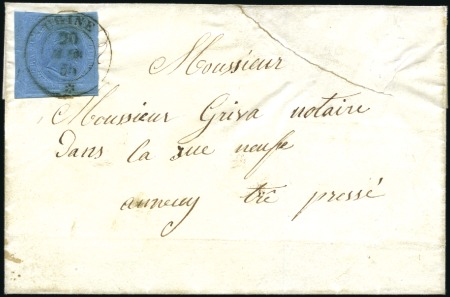 UGINE
20
Monsieur
Moussieur Griva notaire
dans la rue neufse
annecy trê pressé